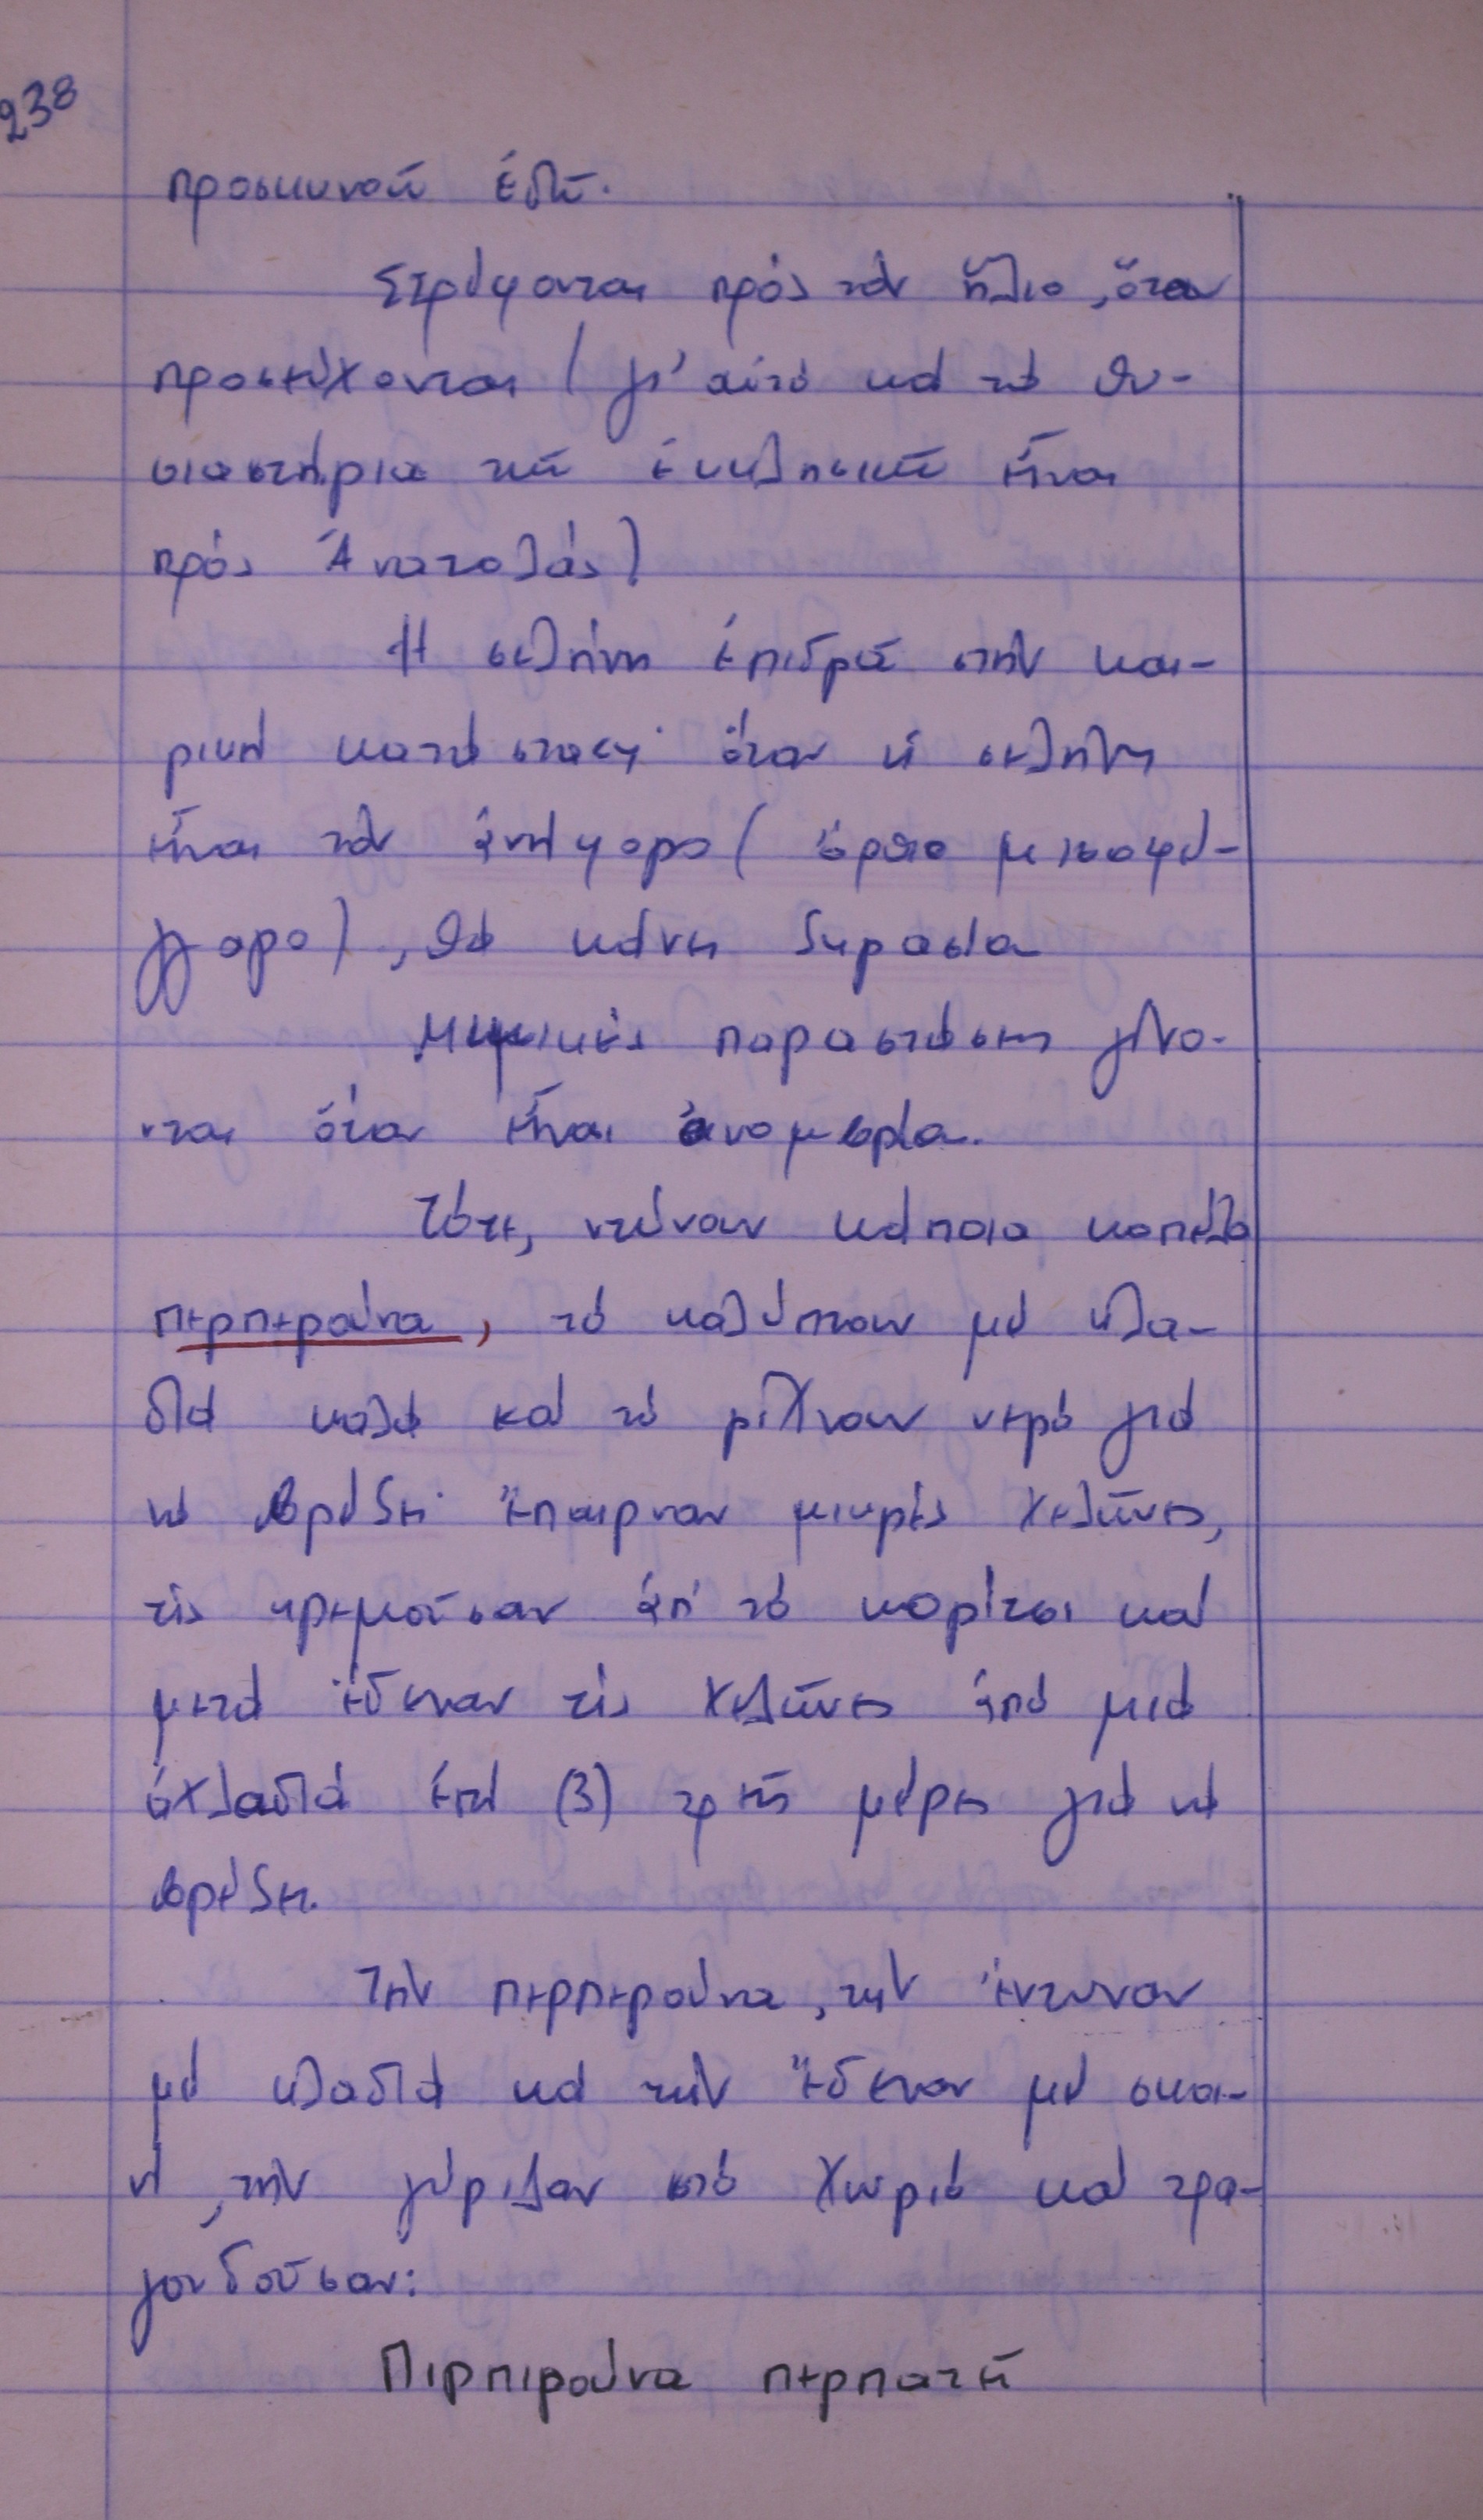 238
προσκυνοῦν ἐδῶ.
Στρέφονται πρὸς τὸν ἥλιο, ὅταν
προσεύχονται (γι' αὐτό καὶ τὸ θυ-
σιαστήρια τῆς ἐκκλησιᾶς εἶναι
πρὸς Ἀνατολάς)
Ἡ σελήνη ἐπιδρᾶ στὴν και-
ρική κατάσταση· ὅταν ἡ σελήνη
εἶναι τὸν ἀνήφορο (ὄρθιο μισοφέ-
γγαρο), θὰ κάνη ξηρασία
Μιμικὲς παραστάσεις γίνο-
νται ὅταν εἶναι ἀνομβρία.
Τότε, ντύναν κάποια κοπέλα
περπερούνα, τὸ καλύπτουν μὲ κλα-
διά καλά καὶ τὸ ρίχνουν νερό γιά
νὰ βρέξη· ἔπαιρναν μικρὲς χελῶνες,
τὶς κρεμοῦσαν ἀπ' τὸ κορίτσι καὶ
μετά ἔδεναν τὶς χελῶνες ἀπὸ μιὰ
ἀχλαδιά ἐπὶ (3) τρεῖς μέρες γιὰ νὰ
βρέξη.
Τὴν περπερούνα, τὴν ἔντυναν
μὲ κλαδιά καὶ τὴν ἔδεναν μὲ σκοι-
νί, τὴν γύριζαν στὸ χωριό καὶ τρα-
γουδοῦσαν:
Πιρπιρούνα περπατεῖ